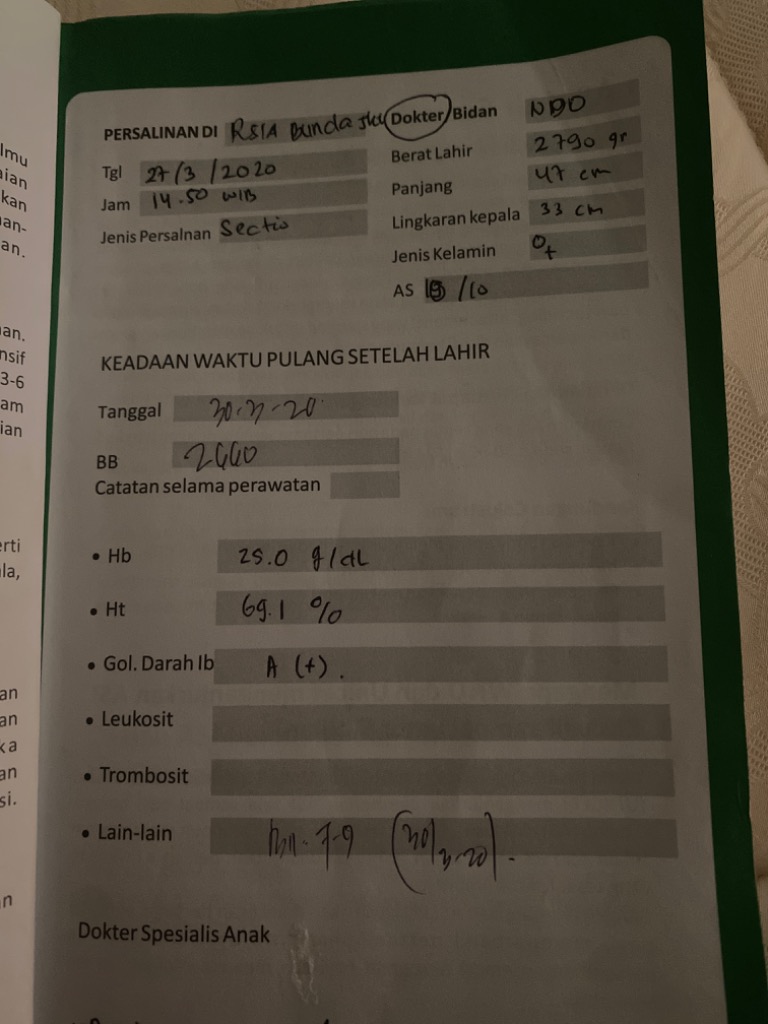 lmu
aian
kan
an-
an.
an.
nsif
3-6
am
ian
erti
la,
an
an
ka
an
si.
n
PERSALINAN DI RSIA Bunda Dokter/Bidan NBD
Tgl 27/3/2020 Berat Lahir 2790 gr
Jam 14.50 WIB Panjang 47 cm
Jenis Persalnan Sectio Lingkaran kepala 33 cm
Jenis Kelamin ♀
AS /10
KEADAAN WAKTU PULANG SETELAH LAHIR
Tanggal 30-3-20
BB 2660
Catatan selama perawatan
• Hb 25.0 g/dL
• Ht 69.1 %
• Gol. Darah Ib A (+).
• Leukosit
• Trombosit
• Lain-lain 7-9 (30/3-20).
Dokter Spesialis Anak